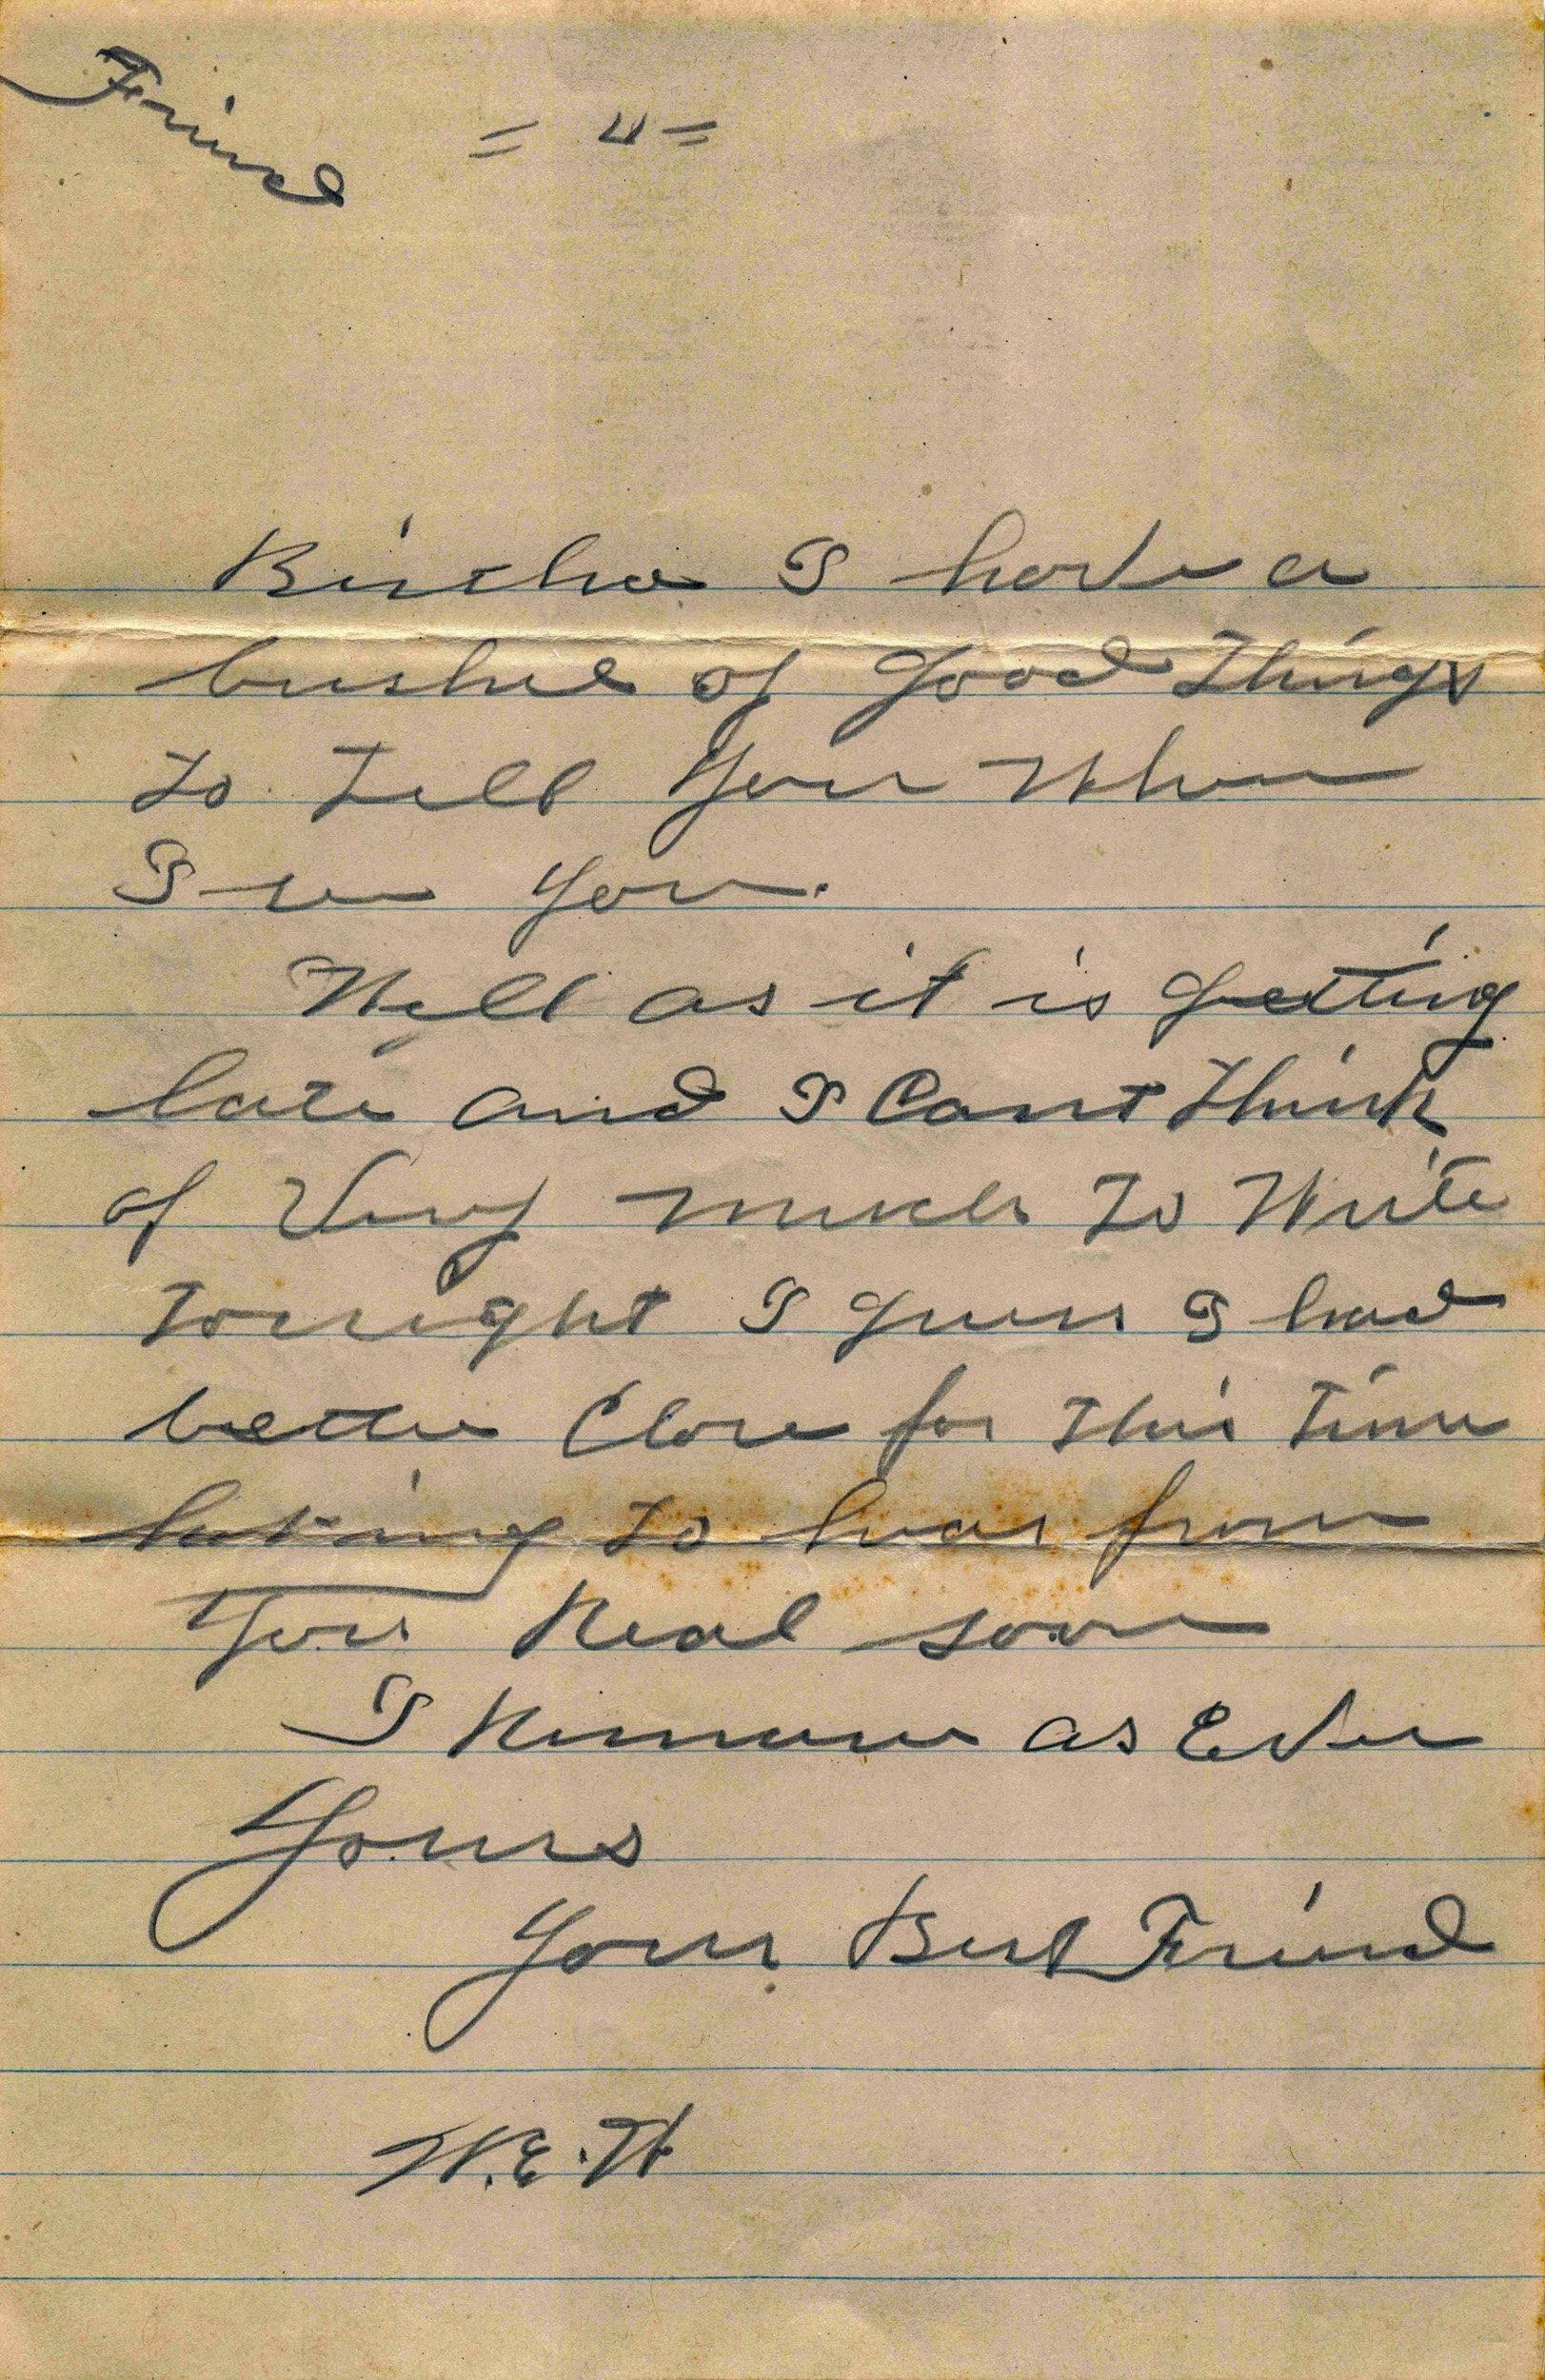 Friend
= 4 =
Birtha I have a
bushel of good things
to tell you when
I see you.
Well as it is getting
late and I cant think
of very much to write
tonight I guess I had
better Close for this time
to hear from
you Real soon
I Remain as Ever
Yours
Your Best Friend
W.E.H